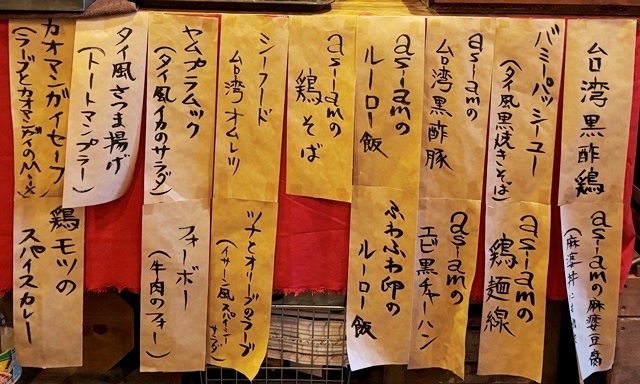 台湾黒酢鶏
バミーパッシーユー
(タイ風黒焼きそば)
asiamの
台湾黒酢豚
asiamの
ルーロー飯
asiamの
鶏そば
シーフード
台湾オムレツ
ヤムプラムック
(タイ風イカのサラダ)
タイ風さつま揚げ
(トートマンプラー)
カオマンガイセーブ
(ラープとカオマンガイのMix)
asiamの麻婆豆腐
(麻婆丼に
asiamの
鶏麺線
asiamの
エビ黒チャーハン
ふわふわ卵の
ルーロー飯
ツナとオリーブのラープ
(イサーン風スパイシーサラダ)
フォーボー
(牛肉のフォー)
鶏モツの
スパイスカレー